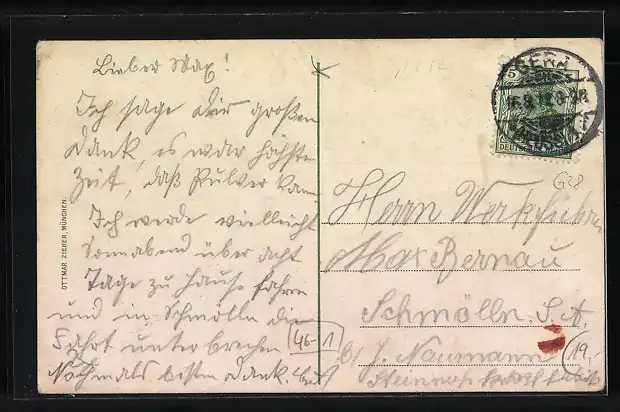 Lieber Max!
Ich sage Dir großen
Dank, es war höchste
Zeit, daß Pulver kam.
Ich werde vielleicht
Sonnabend über acht
Tage zu Hause fahren
und in Schmölln die
Fahrt unterbrechen
Nochmals besten Dank.
OTTMAR ZIEHER, MÜNCHEN.
GERA
5
DEUTSCHES
G28
Herrn Werkführer
Max Bernau
Schmölln. S. A.
46-1
b/ J. Naumann
19.